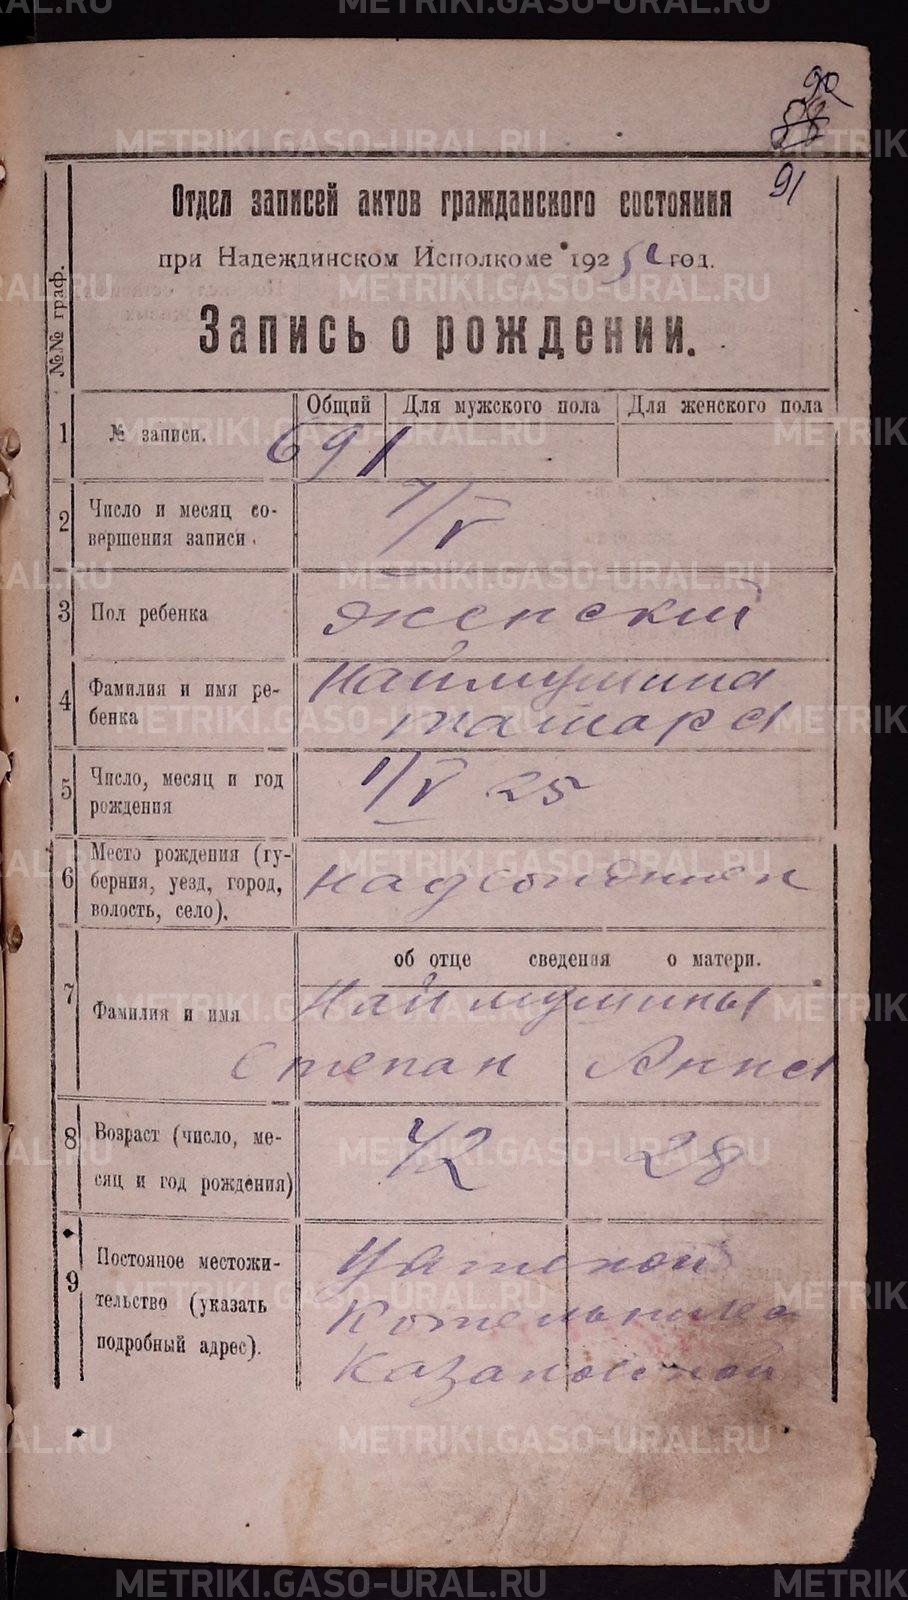 90
88
91
Отдел записей актов гражданского состояния
при Надеждинском Исполкоме 1925 год.
Запись о рождении.
№№ граф.
Общий Для мужского пола Для женского пола
1 № записи. 691
2 Число и месяц со-
вершения записи.
7/V
3 Пол ребенка женский
4 Фамилия и имя ре-
бенка
Наймушина
Тамара
5 Число, месяц и год
рождения
1/V 25
6 Место рождения (гу-
берния, уезд, город,
волость, село).
об отце сведения о матери.
7 Фамилия и имя
Наймушины
Степан Анна
8 Возраст (число, ме-
сяц и год рождения)
42 28
9 Постояное местожи-
тельство (указать
подробный адрес).
Вятской
Котельнич
METRIKI.GASO-URAL.RU